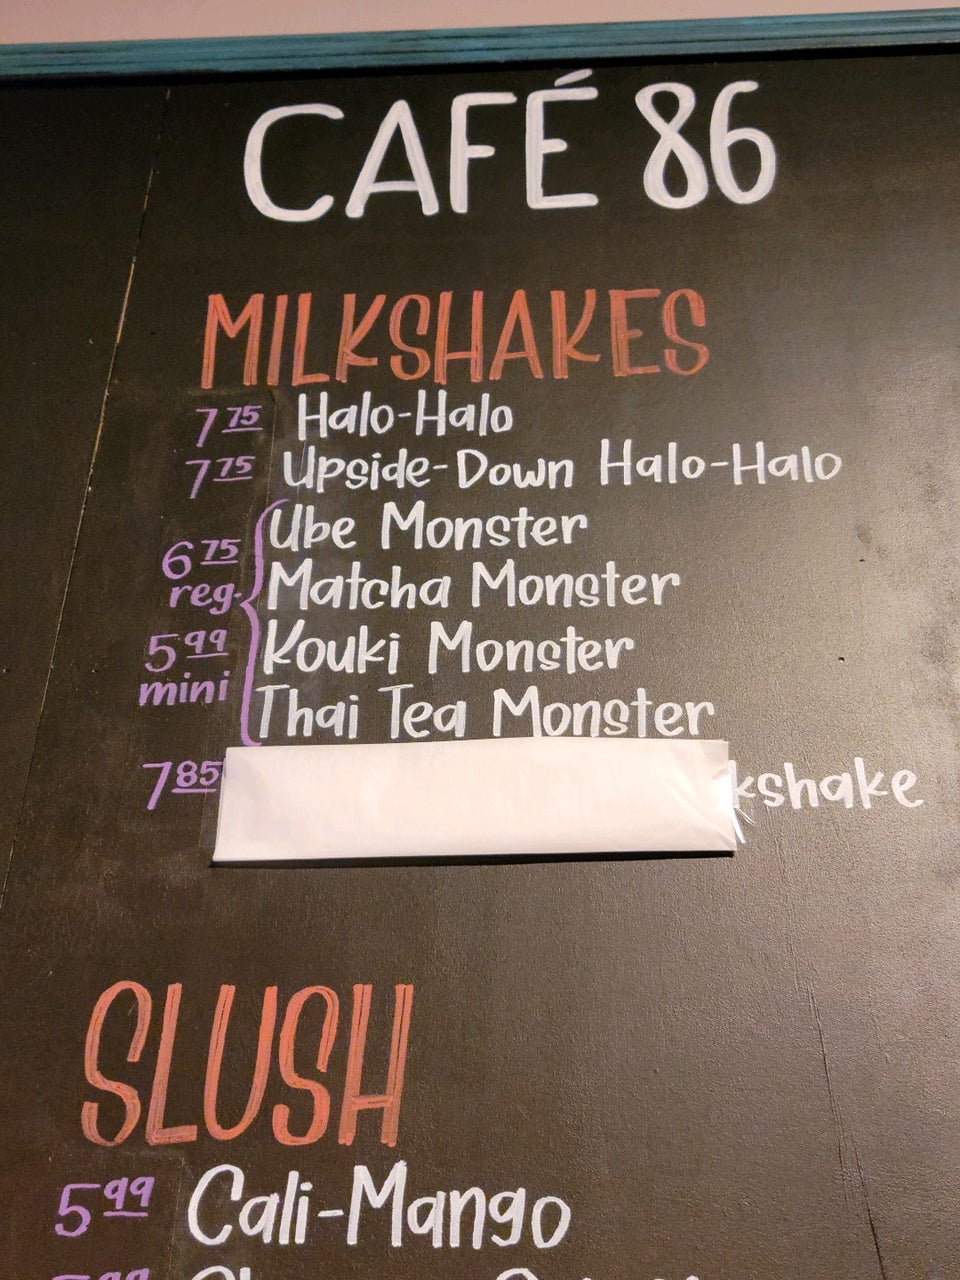 CAFÉ 86
MILKSHAKES
7.75 Halo-Halo
7.75 Upside-Down Halo-Halo
6.75 reg.
5.99 mini
Ube Monster
Matcha Monster
Kouki Monster
Thai Tea Monster
7.85 kshake
SLUSH
5.99 Cali-Mango